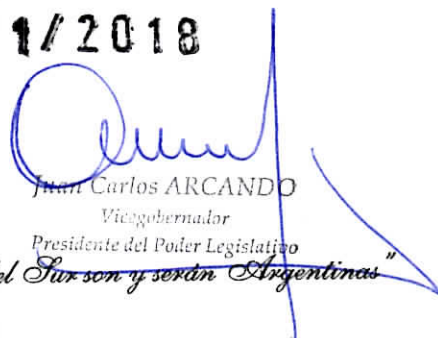 1/2018
Juan Carlos ARCANDO
Vicegobernador
Presidente del Poder Legislativo
el Sur son y serán Argentinas"